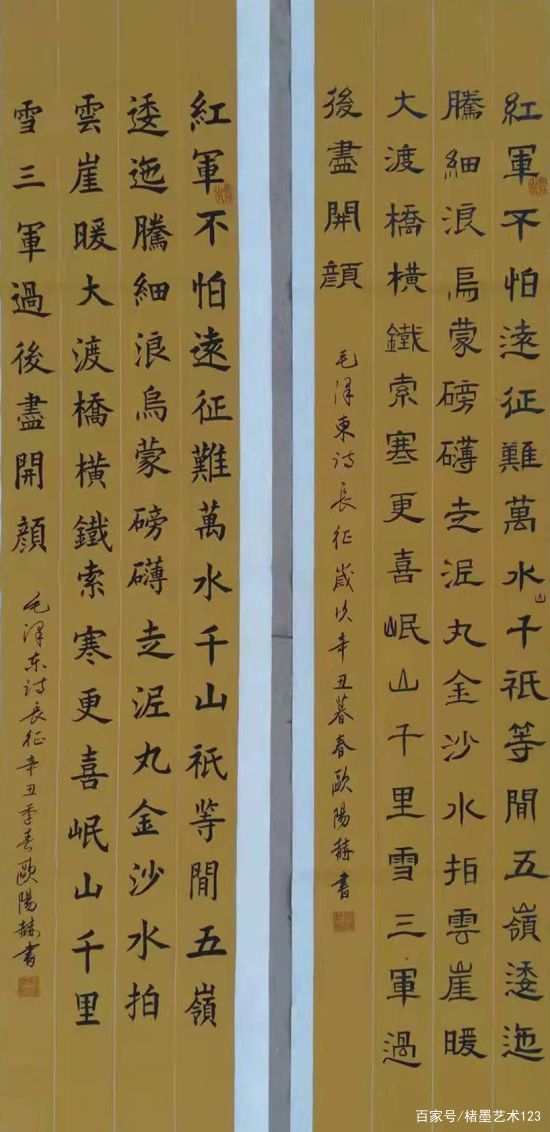 紅軍不怕遠征難萬水山千祇等閒五嶺逶迤
騰細浪烏蒙磅礴走泥丸金沙水拍雲崖暖
大渡橋橫鐵索寒更喜岷山千里雪三軍過
後盡開顏
毛泽東诗長征歲次辛丑暮春歐陽赫書
紅軍不怕遠征難萬水千山祇等閒五嶺
逶迤騰細浪烏蒙磅礴走泥丸金沙水拍
雲崖暖大渡橋橫鐵索寒更喜岷山千里
雪三軍過後盡開顏
毛泽东诗長征辛丑季春歐陽赫書
百家号/楮墨艺术123